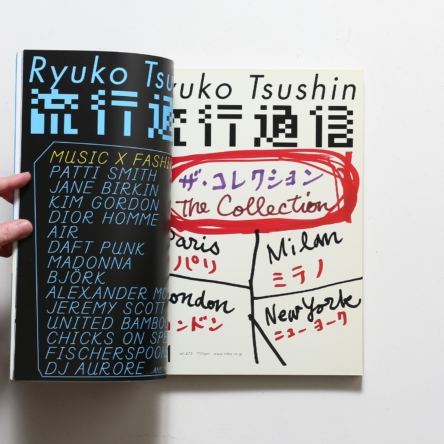 Ryuko Tsu
流行通
MUSIC X FASHI
PATTI SMITH
JANE BIRKIN
KIM GORDON
DIOR HOMME
AIR
DAFT PUNK
MADONNA
BJÖRK
ALEXANDER MC
JEREMY SCOTT
UNITED BAMBOO
CHICKS ON SPE
FISCHERSPOON
DJ AURORE
uko Tsushin
行通信
ザ・コレクション
The Collection
Paris
パリ
Milan
ミラノ
London
ンドン
New York
ニューヨーク